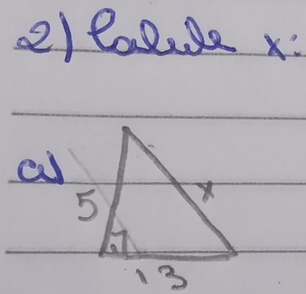 2) Calcule x:
a)
5
x
13